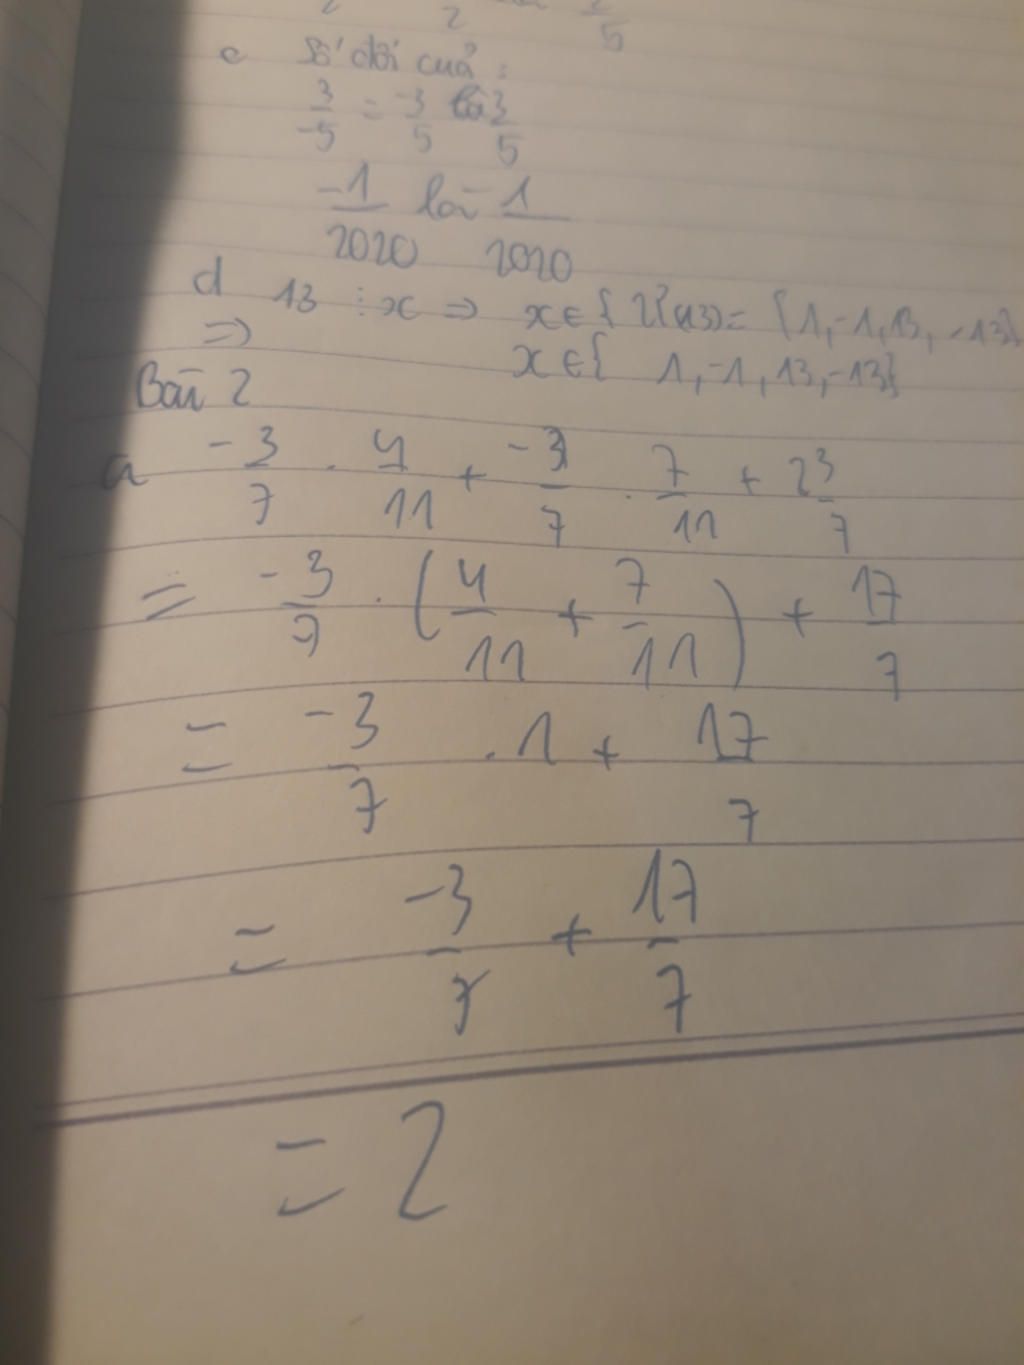 2 5
c Số đối của :
3/-5 = -3/5 là 3/5
-1/2020 là 1/2020
d 13 ⋮ x ⇒ x ∈ { Ư(13) = {1, -1, 13, -13}
⇒ x ∈ { 1, -1, 13, -13}
Bài 2
a -3/7 . 4/11 + -3/7 . 7/11 + 2 3/7
= -3/7 . (4/11 + 7/11) + 17/7
= -3/7 . 1 + 17/7
= -3/7 + 17/7
= 2